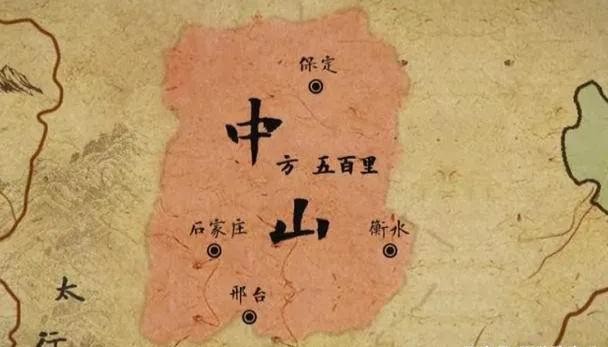 保定
中
方 五百里
石家庄
山
衡水
邢台
太
行